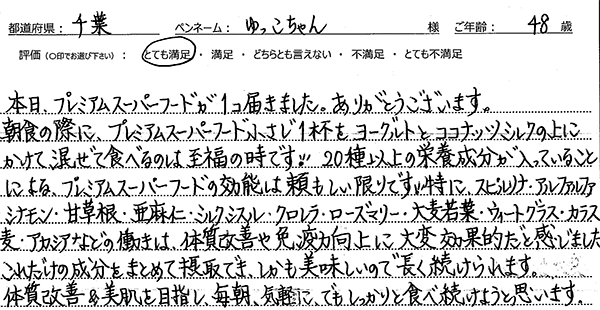 都道府県： 千葉 ペンネーム： ゆっこちゃん 様 ご年齢： 48 歳
評価（○印でお選び下さい）： とても満足 ・ 満足 ・ どちらとも言えない ・ 不満足 ・ とても不満足
本日、プレミアムスーパーフードが1コ届きました。ありがとうございます。
朝食の際に、プレミアムスーパーフード小さじ1杯を、ヨーグルトとココナッツミルクの上に
かけて、混ぜて食べるのは至福の時です!!! 20種以上の栄養成分が入っていること
による、プレミアムスーパーフードの効能は頼もしい限りです!!!特に、スピルリナ・アルファルファ
シナモン・甘草根・亜麻仁・シルクシスル・クロレラ・ローズマリー・大麦若葉・ウィートグラス・カラス
麦・アカシアなどの働きは、体質改善や免疫力向上に大変効果的だと感じました
これだけの成分をまとめて摂取でき、しかも美味しいので長く続けられます。
体質改善&美肌を目指し、毎朝、気軽に、でもしっかりと食べ続けようと思います。